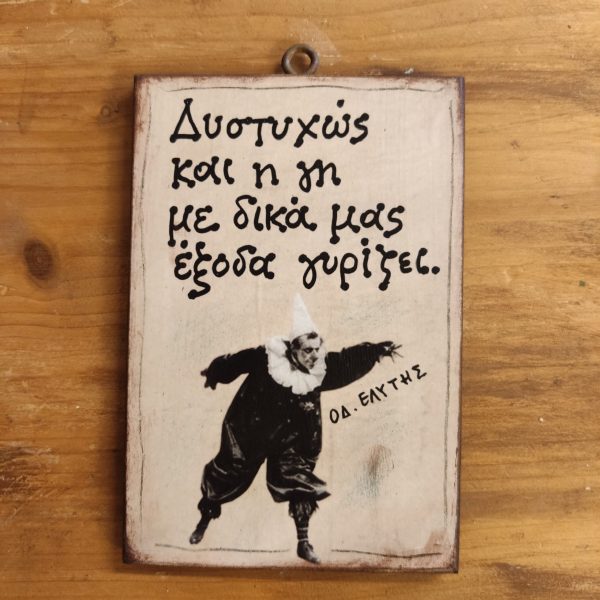 Δυστυχώς
και η γη
με δικά μας
έξοδα γυρίζει.
ΟΔ. ΕΛΥΤΗΣ